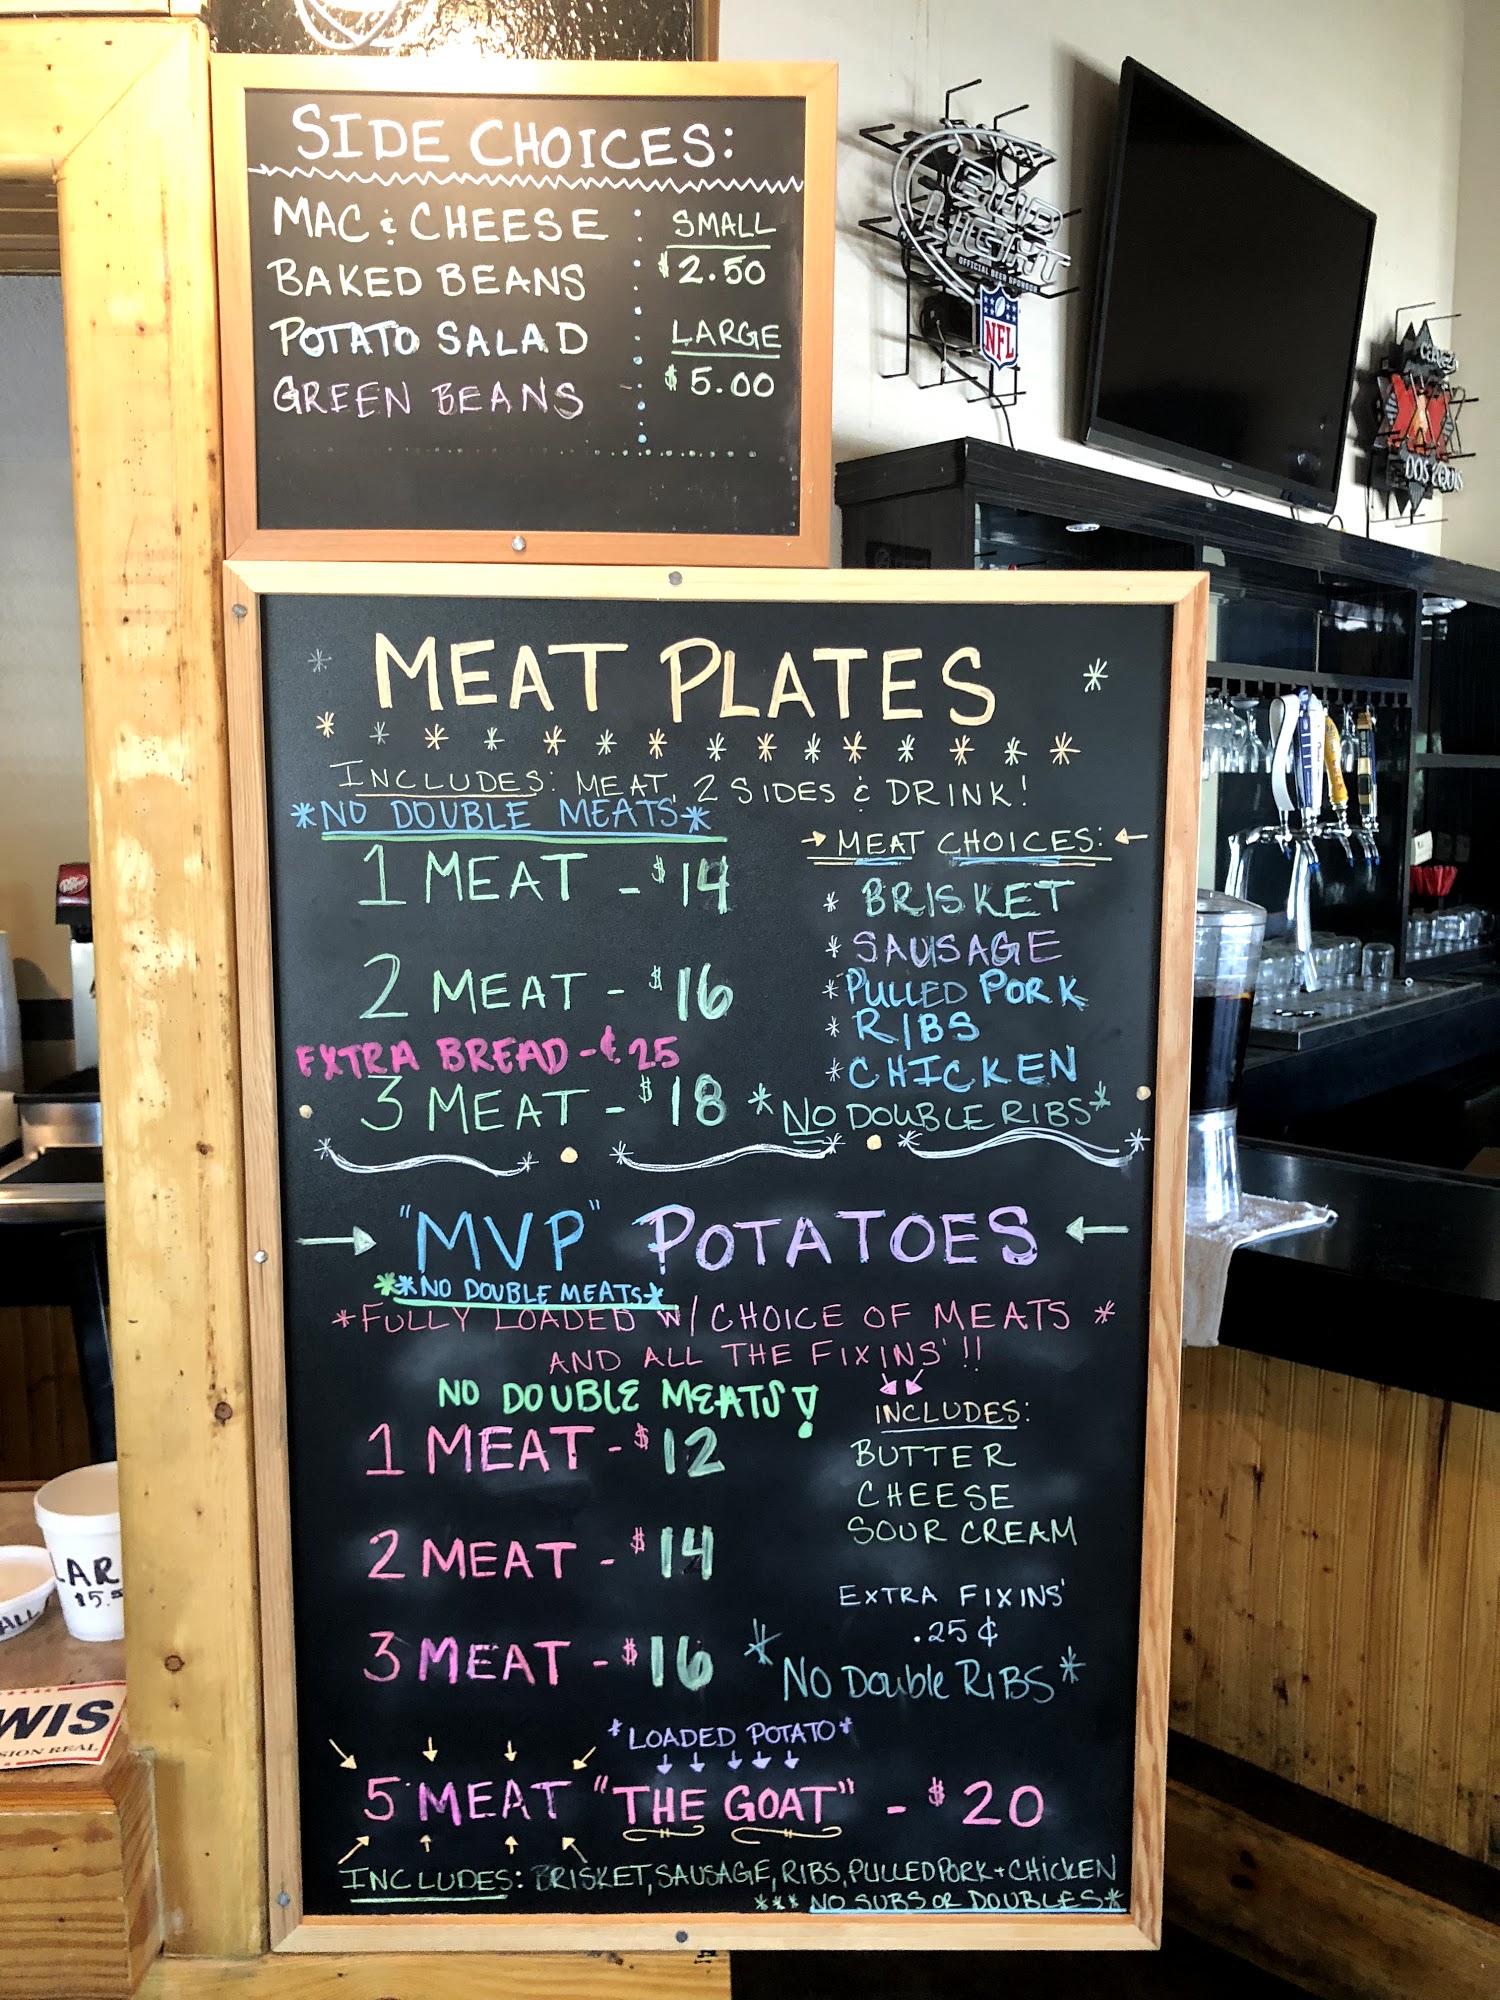 SIDE CHOICES:
MAC & CHEESE
BAKED BEANS
POTATO SALAD
GREEN BEANS
SMALL
$2.50
LARGE
$5.00
BUD
LIGHT
OFFICIAL BEER SPONSOR
NFL
XX
DOS EQUIS
MEAT PLATES
INCLUDES: MEAT, 2 SIDES & DRINK!
*NO DOUBLE MEATS*
1 MEAT - $14
2 MEAT - $16
EXTRA BREAD - ¢.25
3 MEAT - $18
MEAT CHOICES:
* BRISKET
* SAUSAGE
* PULLED PORK
* RIBS
* CHICKEN
* NO DOUBLE RIBS *
"MVP" POTATOES
**NO DOUBLE MEATS*
*FULLY LOADED W/ CHOICE OF MEATS *
AND ALL THE FIXINS'!!
NO DOUBLE MEATS!
1 MEAT - $12
2 MEAT - $14
3 MEAT - $16
INCLUDES:
BUTTER
CHEESE
SOUR CREAM
EXTRA FIXINS'
.25¢
* NO DOUBLE RIBS *
*LOADED POTATO*
5 MEAT "THE GOAT" - $20
INCLUDES: BRISKET, SAUSAGE, RIBS, PULLED PORK + CHICKEN
*** NO SUBS OR DOUBLES*
Dr Pepper
LAR
$5.00
ALL
WIS
SION REAL